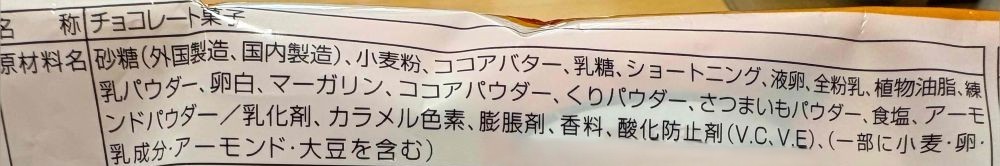 名 称 チョコレート菓子
原材料名 砂糖(外国製造、国内製造)、小麦粉、ココアバター、乳糖、ショートニング、液卵、全粉乳、植物油脂、練
乳パウダー、卵白、マーガリン、ココアパウダー、くりパウダー、さつまいもパウダー、食塩、アーモ
ンドパウダー/乳化剤、カラメル色素、膨脹剤、香料、酸化防止剤(V.C、V.E)、(一部に小麦・卵・
乳成分・アーモンド・大豆を含む)